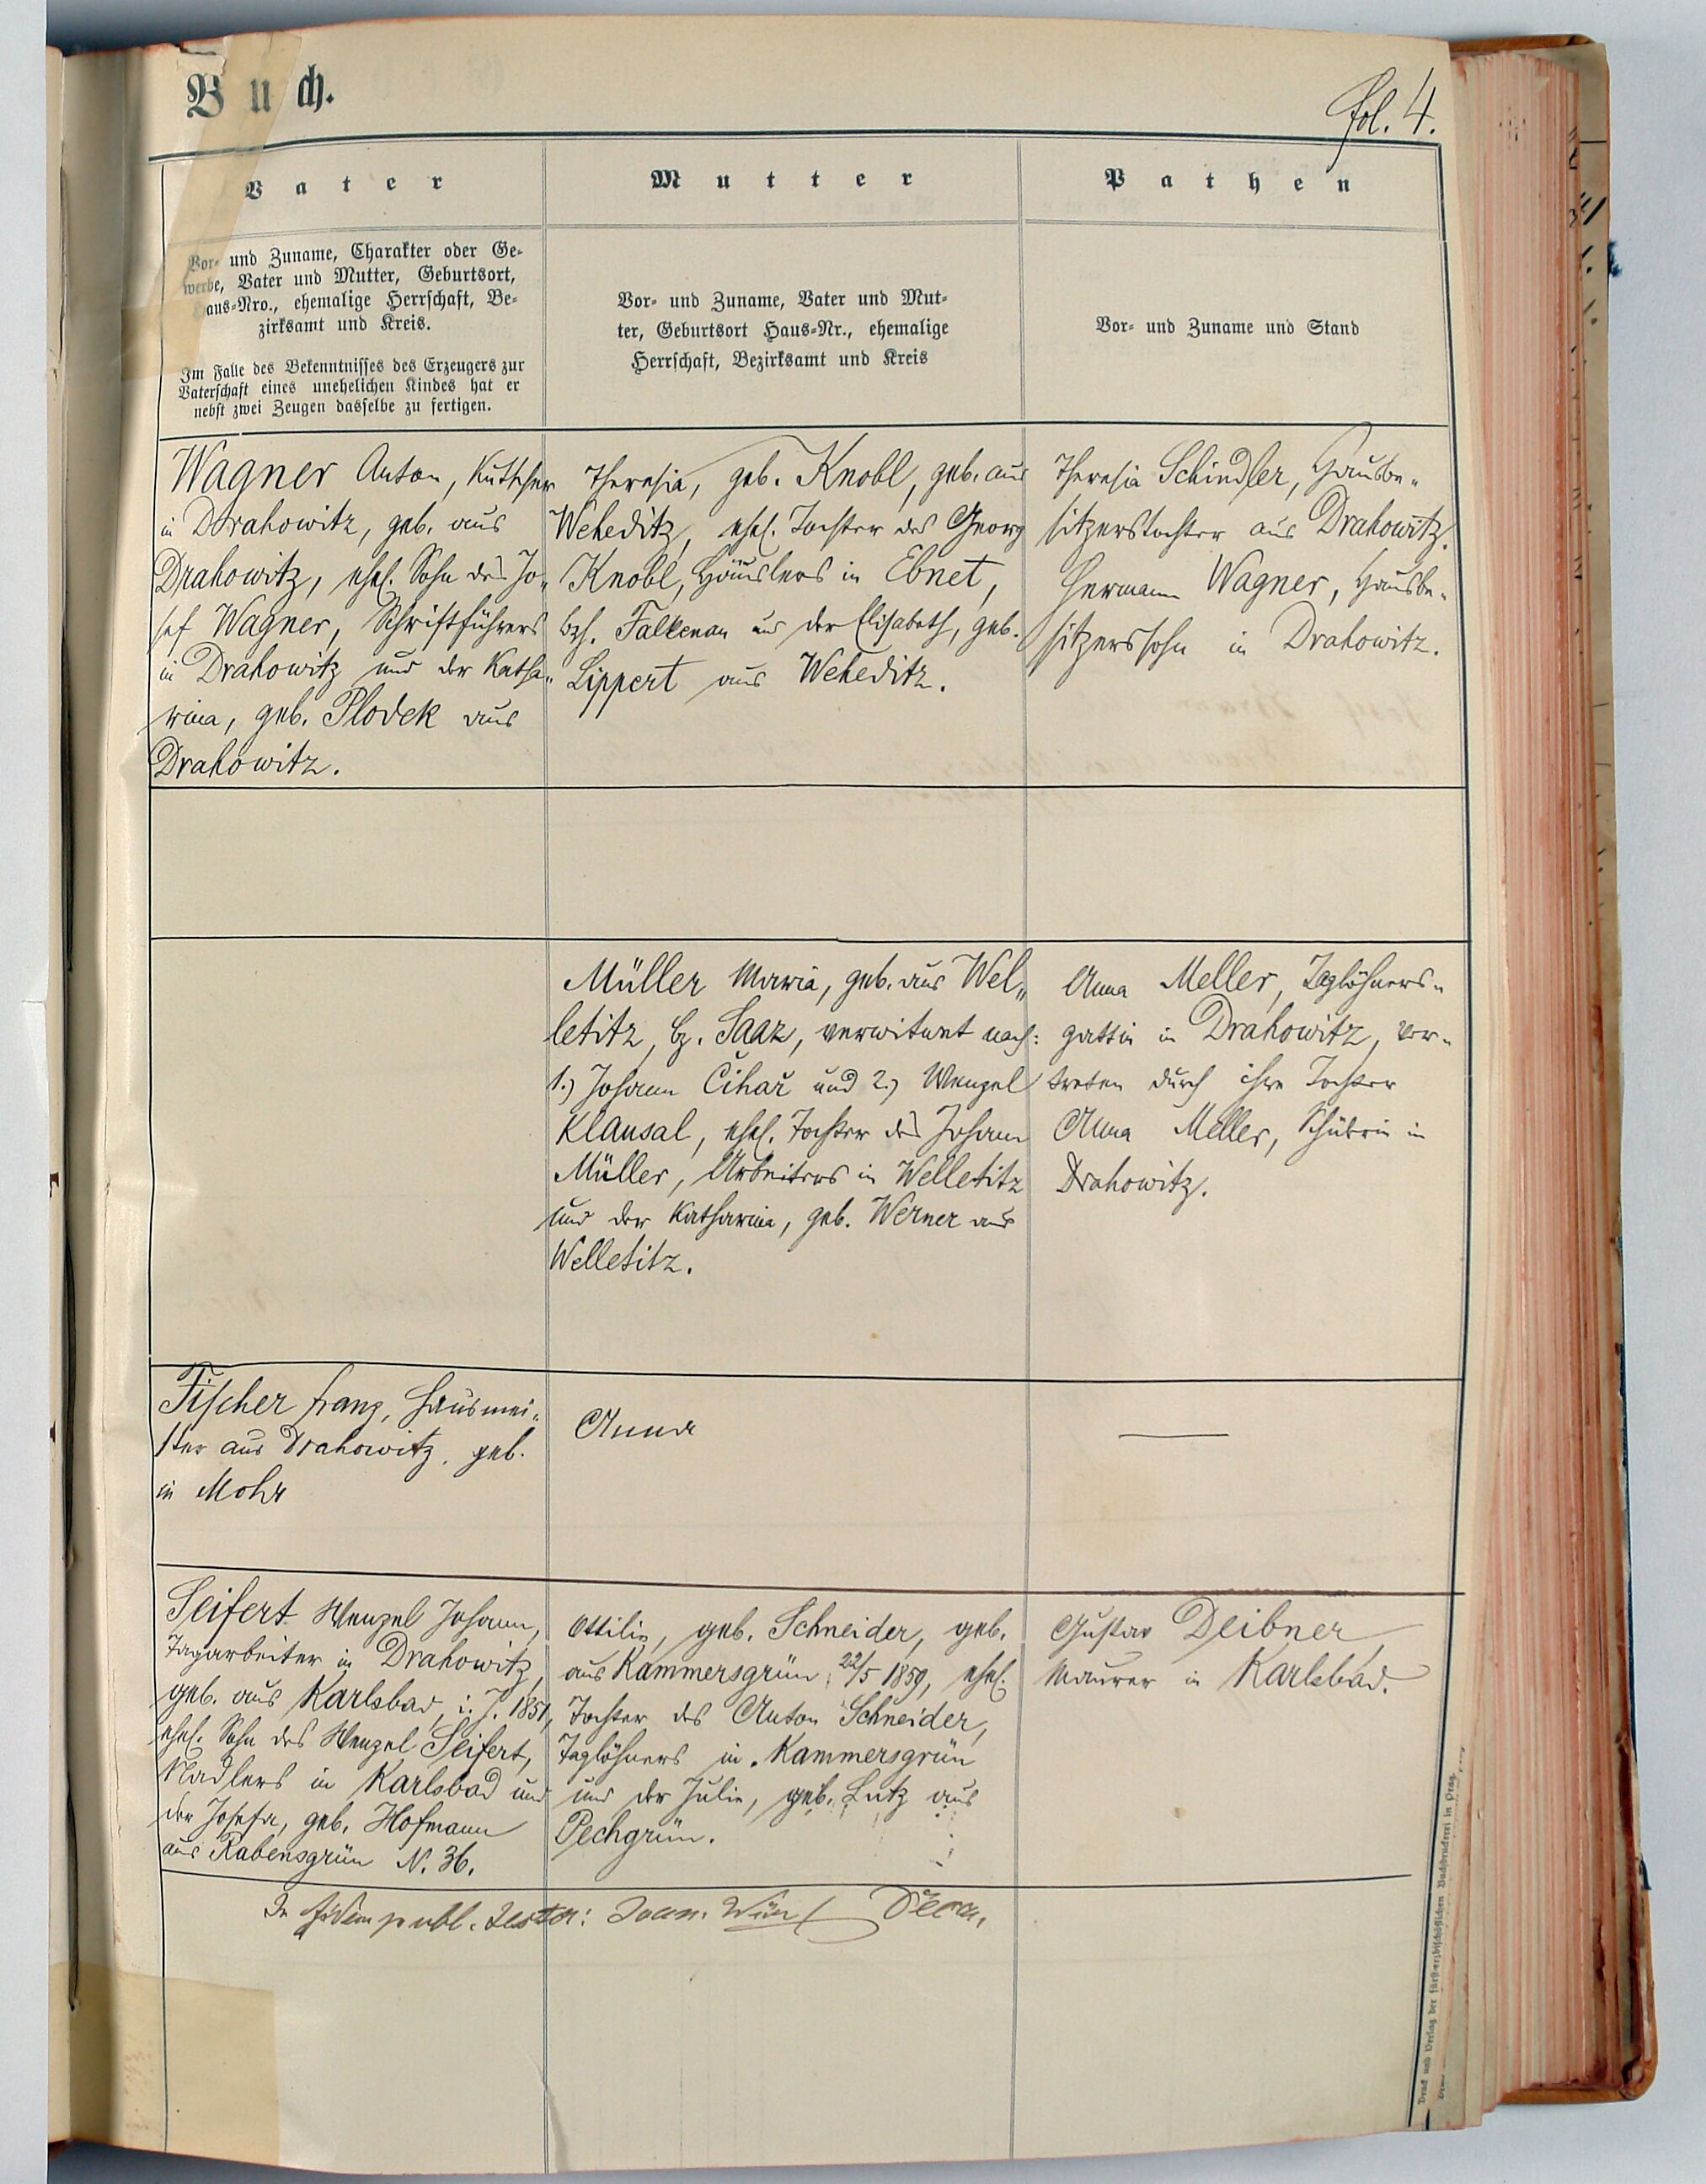 Buch.
fol. 4.
Vater
Vor- und Zuname, Charakter oder Ge-
werbe, Vater und Mutter, Geburtsort,
Haus-Nro., ehemalige Herrschaft, Be-
zirksamt und Kreis.
Im Falle des Bekenntnisses des Erzeugers zur
Vaterschaft eines unehelichen Kindes hat er
nebst zwei Zeugen dasselbe zu fertigen.
Mutter
Vor- und Zuname, Vater und Mut-
ter, Geburtsort Haus-Nr., ehemalige
Herrschaft, Bezirksamt und Kreis
Pathen
Vor- und Zuname und Stand
Wagner Anton, Kutscher
in Drahowitz, geb. aus
Drahowitz, ehel. Sohn des Jo-
sef Wagner, Schriftführers
in Drahowitz und der Katha-
rina, geb. Plodek aus
Drahowitz.
Theresia, geb. Knobl, geb. aus
Weheditz, ehel. Tochter des Georg
Knobl, Häuslers in Ebnet,
bzh. Falkenau und der Elisabeth, geb.
Lippert aus Weheditz.
Theresia Schindler, Hausbe-
sitzerstochter aus Drahowitz.
Hermann Wagner, Hausbe-
sitzerssohn in Drahowitz.
Müller Maria, geb. aus Wel-
letitz, bz. Saaz, verwitwet nach:
1.) Johann Čihař und 2.) Wenzel
Klausal, ehel. Tochter des Johann
Müller, Arbeiters in Welletitz
und der Katharina, geb. Werner aus
Welletitz.
Anna Meller, Taglöhners-
gattin in Drahowitz, ver-
treten durch ihre Tochter
Anna Meller, Schülerin in
Drahowitz.
Fischer Franz, Hausmei-
ster aus Drahowitz, geb.
in Mohr
Anna
Seifert Wenzel Johann,
Tagarbeiter in Drahowitz,
geb. aus Karlsbad, i. J. 1851,
ehel. Sohn des Wenzel Seifert,
Nadlers in Karlsbad und
der Josefa, geb. Hofmann
aus Rabensgrün N. 36.
Ottilie, geb. Schneider, geb.
aus Kammersgrün, 22/5 1859, ehel.
Tochter des Anton Schneider,
Taglöhners in Kammersgrün
und der Julie, geb. Lutz aus
Pechgrün.
Gustav Deibner,
Maurer in Karlsbad.
In fidem publ. testor: Joan. Dec.
Druck und Verlag der fürst-erzbischöflichen Buchdruckerei in Prag.